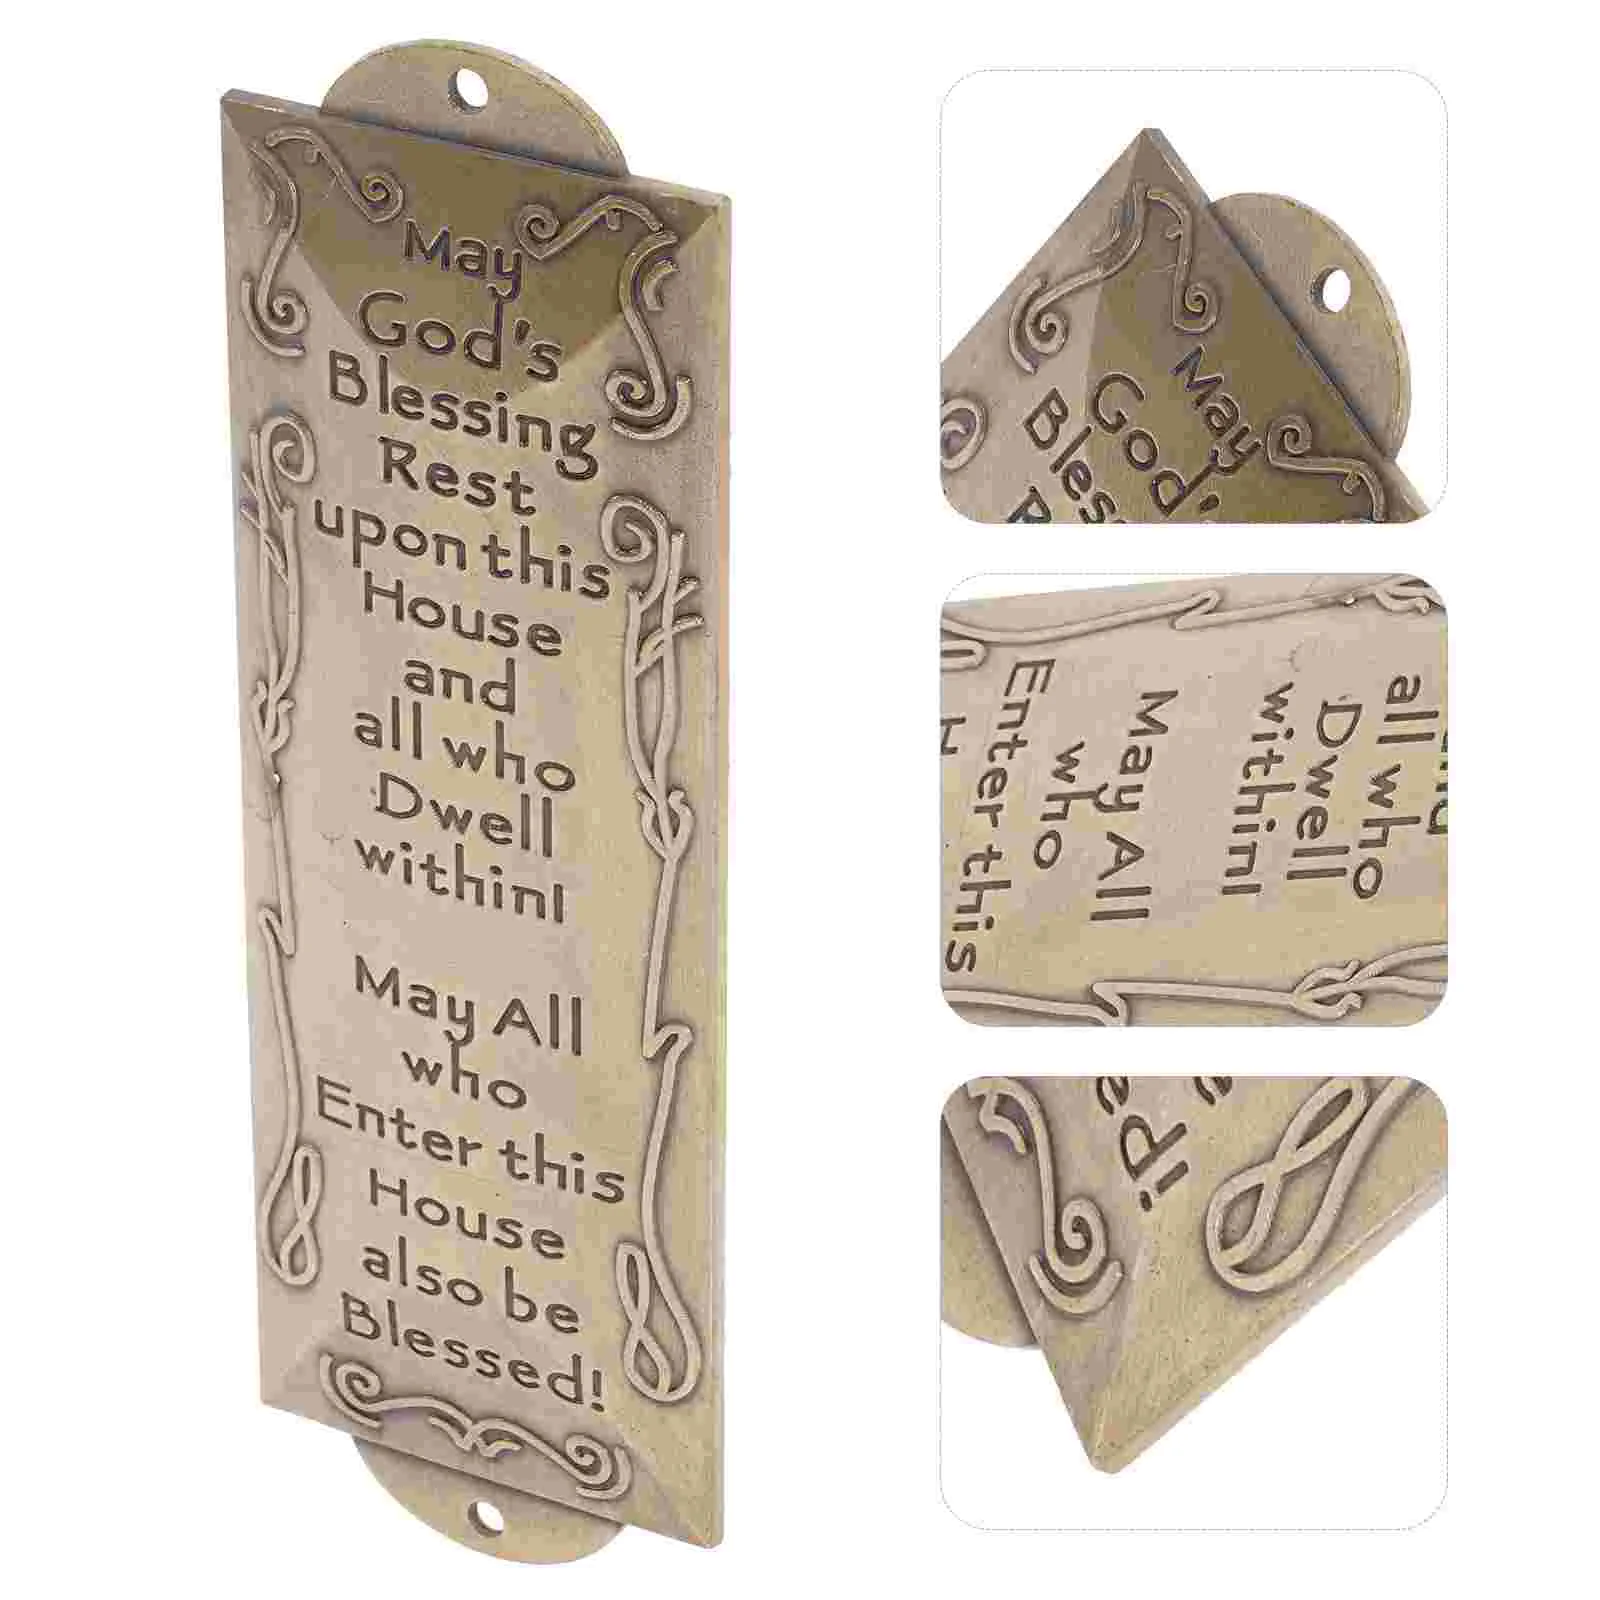 May
God's
Blessing
Rest
upon this
House
and
all who
Dwell
within!
May All
who
Enter this
House
also be
Blessed!
May
God's
Bles
R
all who
Dwell
within!
May All
who
Enter this
H